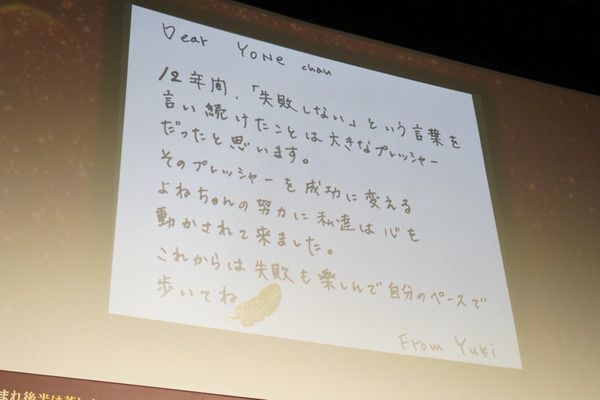 Dear YONE chan
12年間、「失敗しない」という言葉を
言い続けたことは大きなプレッシャー
だったと思います。
そのプレッシャーを成功に変える
よねちゃんの努力に私達は心を
動かされて来ました。
これからは失敗も楽しんで自分のペースで
歩いてね
From Yuki
まれ後半は